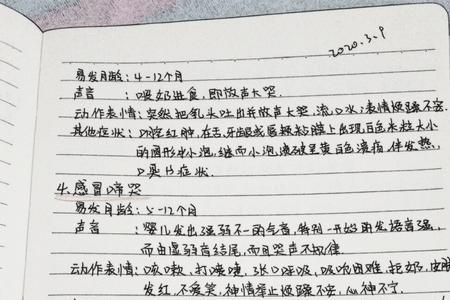 2020.3.9
易发月龄: 4-12个月
声音 : 喂奶进食,即放声大哭.
动作表情: 突然把乳头吐出并放声大哭,流口水,表情烦躁不安.
其他症状: 口腔红肿,在舌,牙龈或唇颊粘膜上出现,白色米粒大小
的圆形水小泡,继而小泡溃破呈黄白色溃疡,伴发热,
口臭等症状.
4.感冒啼哭
易发月龄: 5-12个月
声音 : 婴儿发出强弱不一的气音,特别一开始用发语音强,
而由显弱音结尾,而且哭声不规律.
动作表情: 咳嗽、打喷嚏,张口呼吸,吸吮困难,拒奶,皮肤
发红,不爱笑,神情举止烦躁不安,心神不宁.